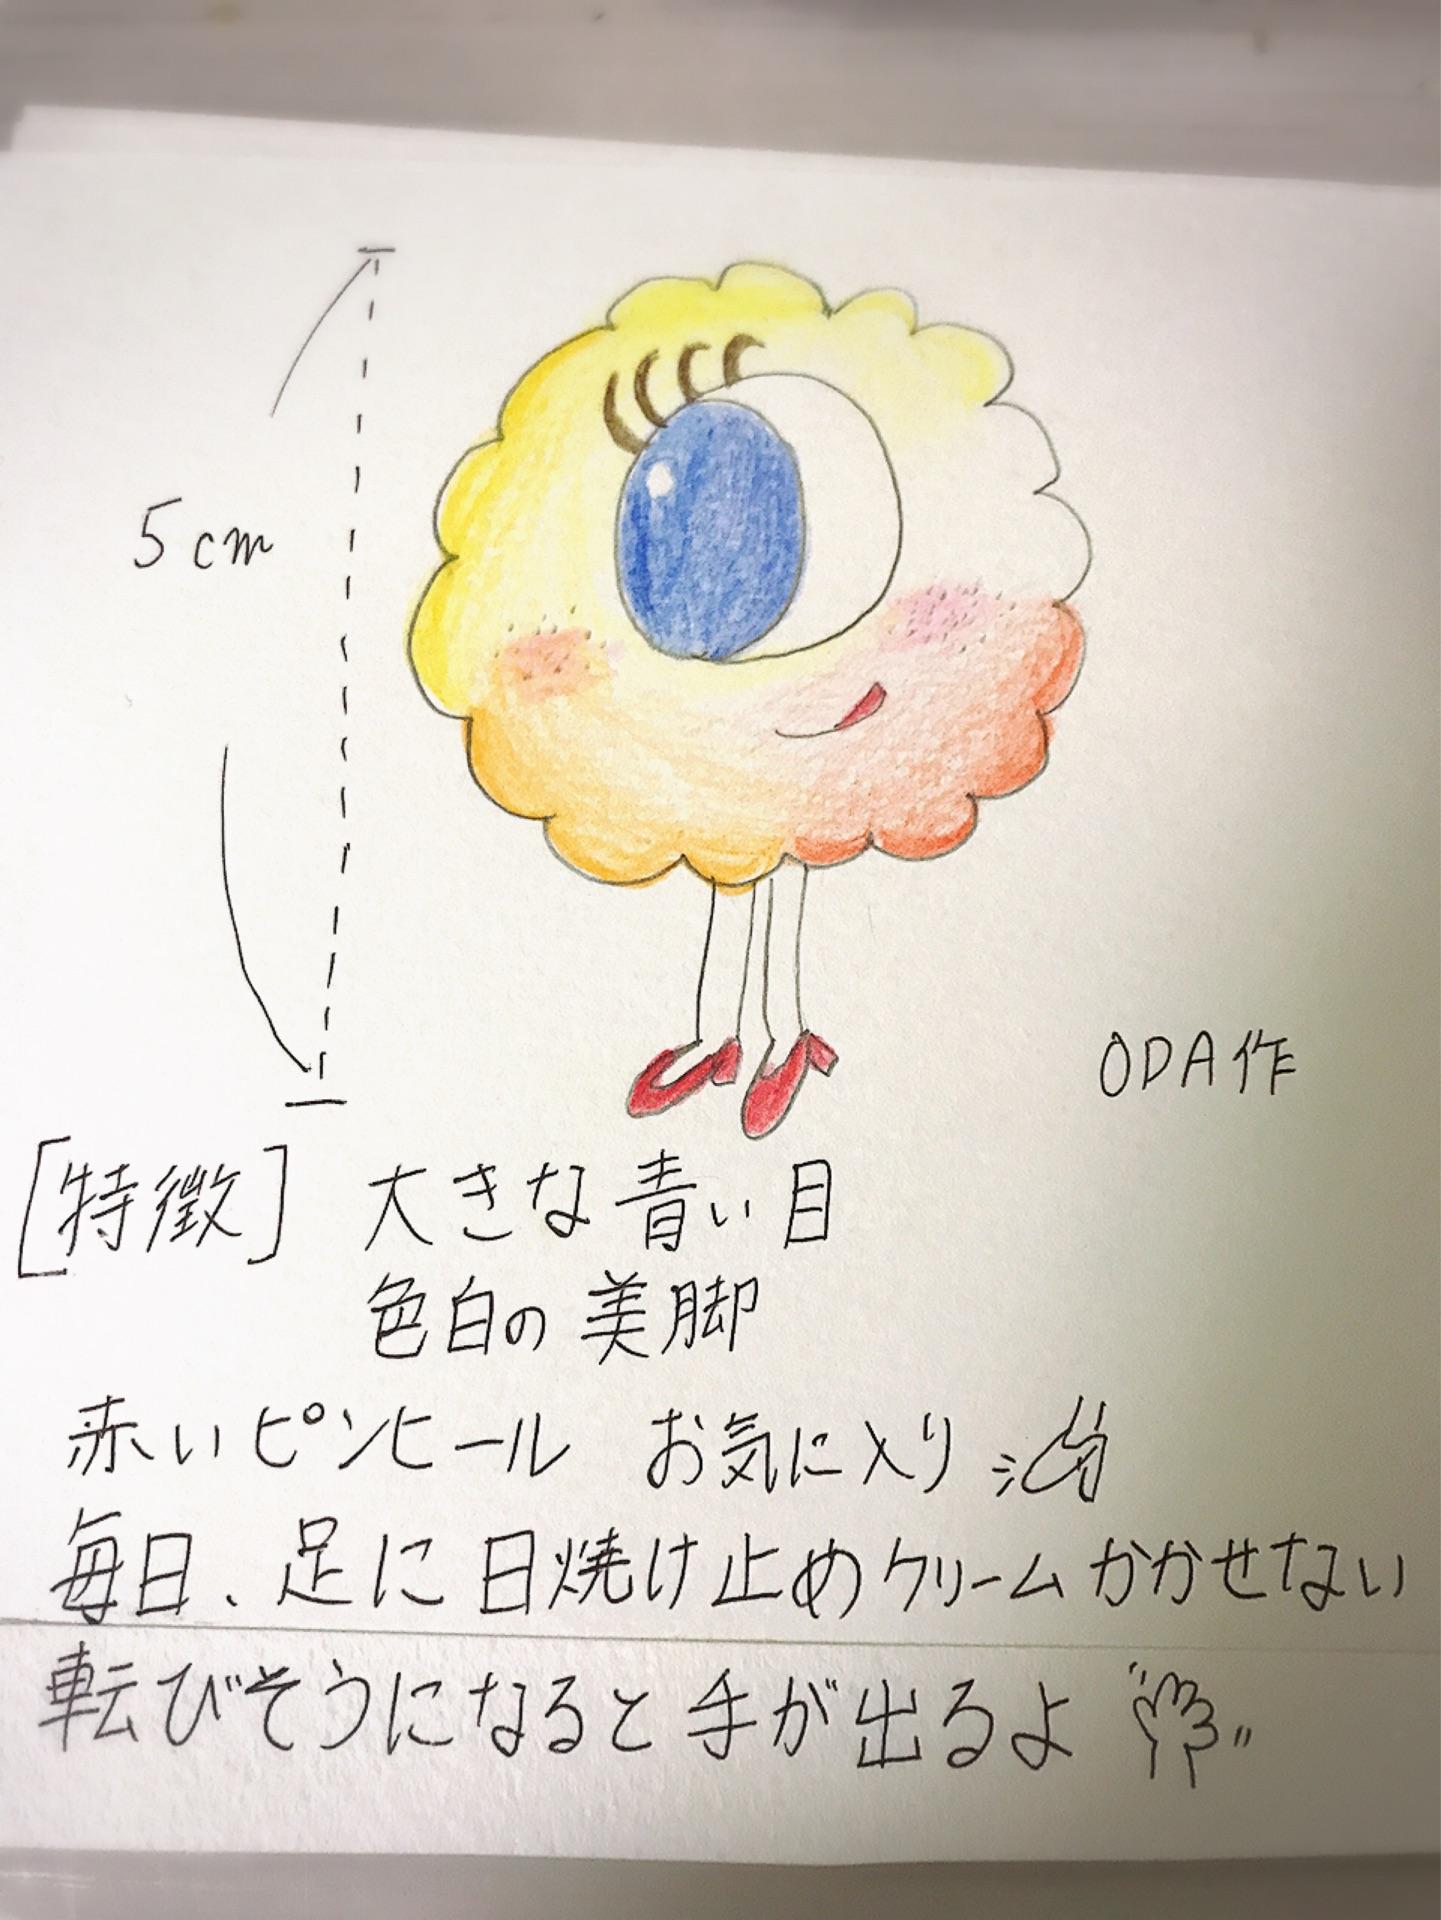 5cm
ODA作
[特徴] 大きな青い目
色白の美脚
赤いピンヒール お気に入り
毎日、足に日焼け止めクリームかかせない
転びそうになると手が出るよ